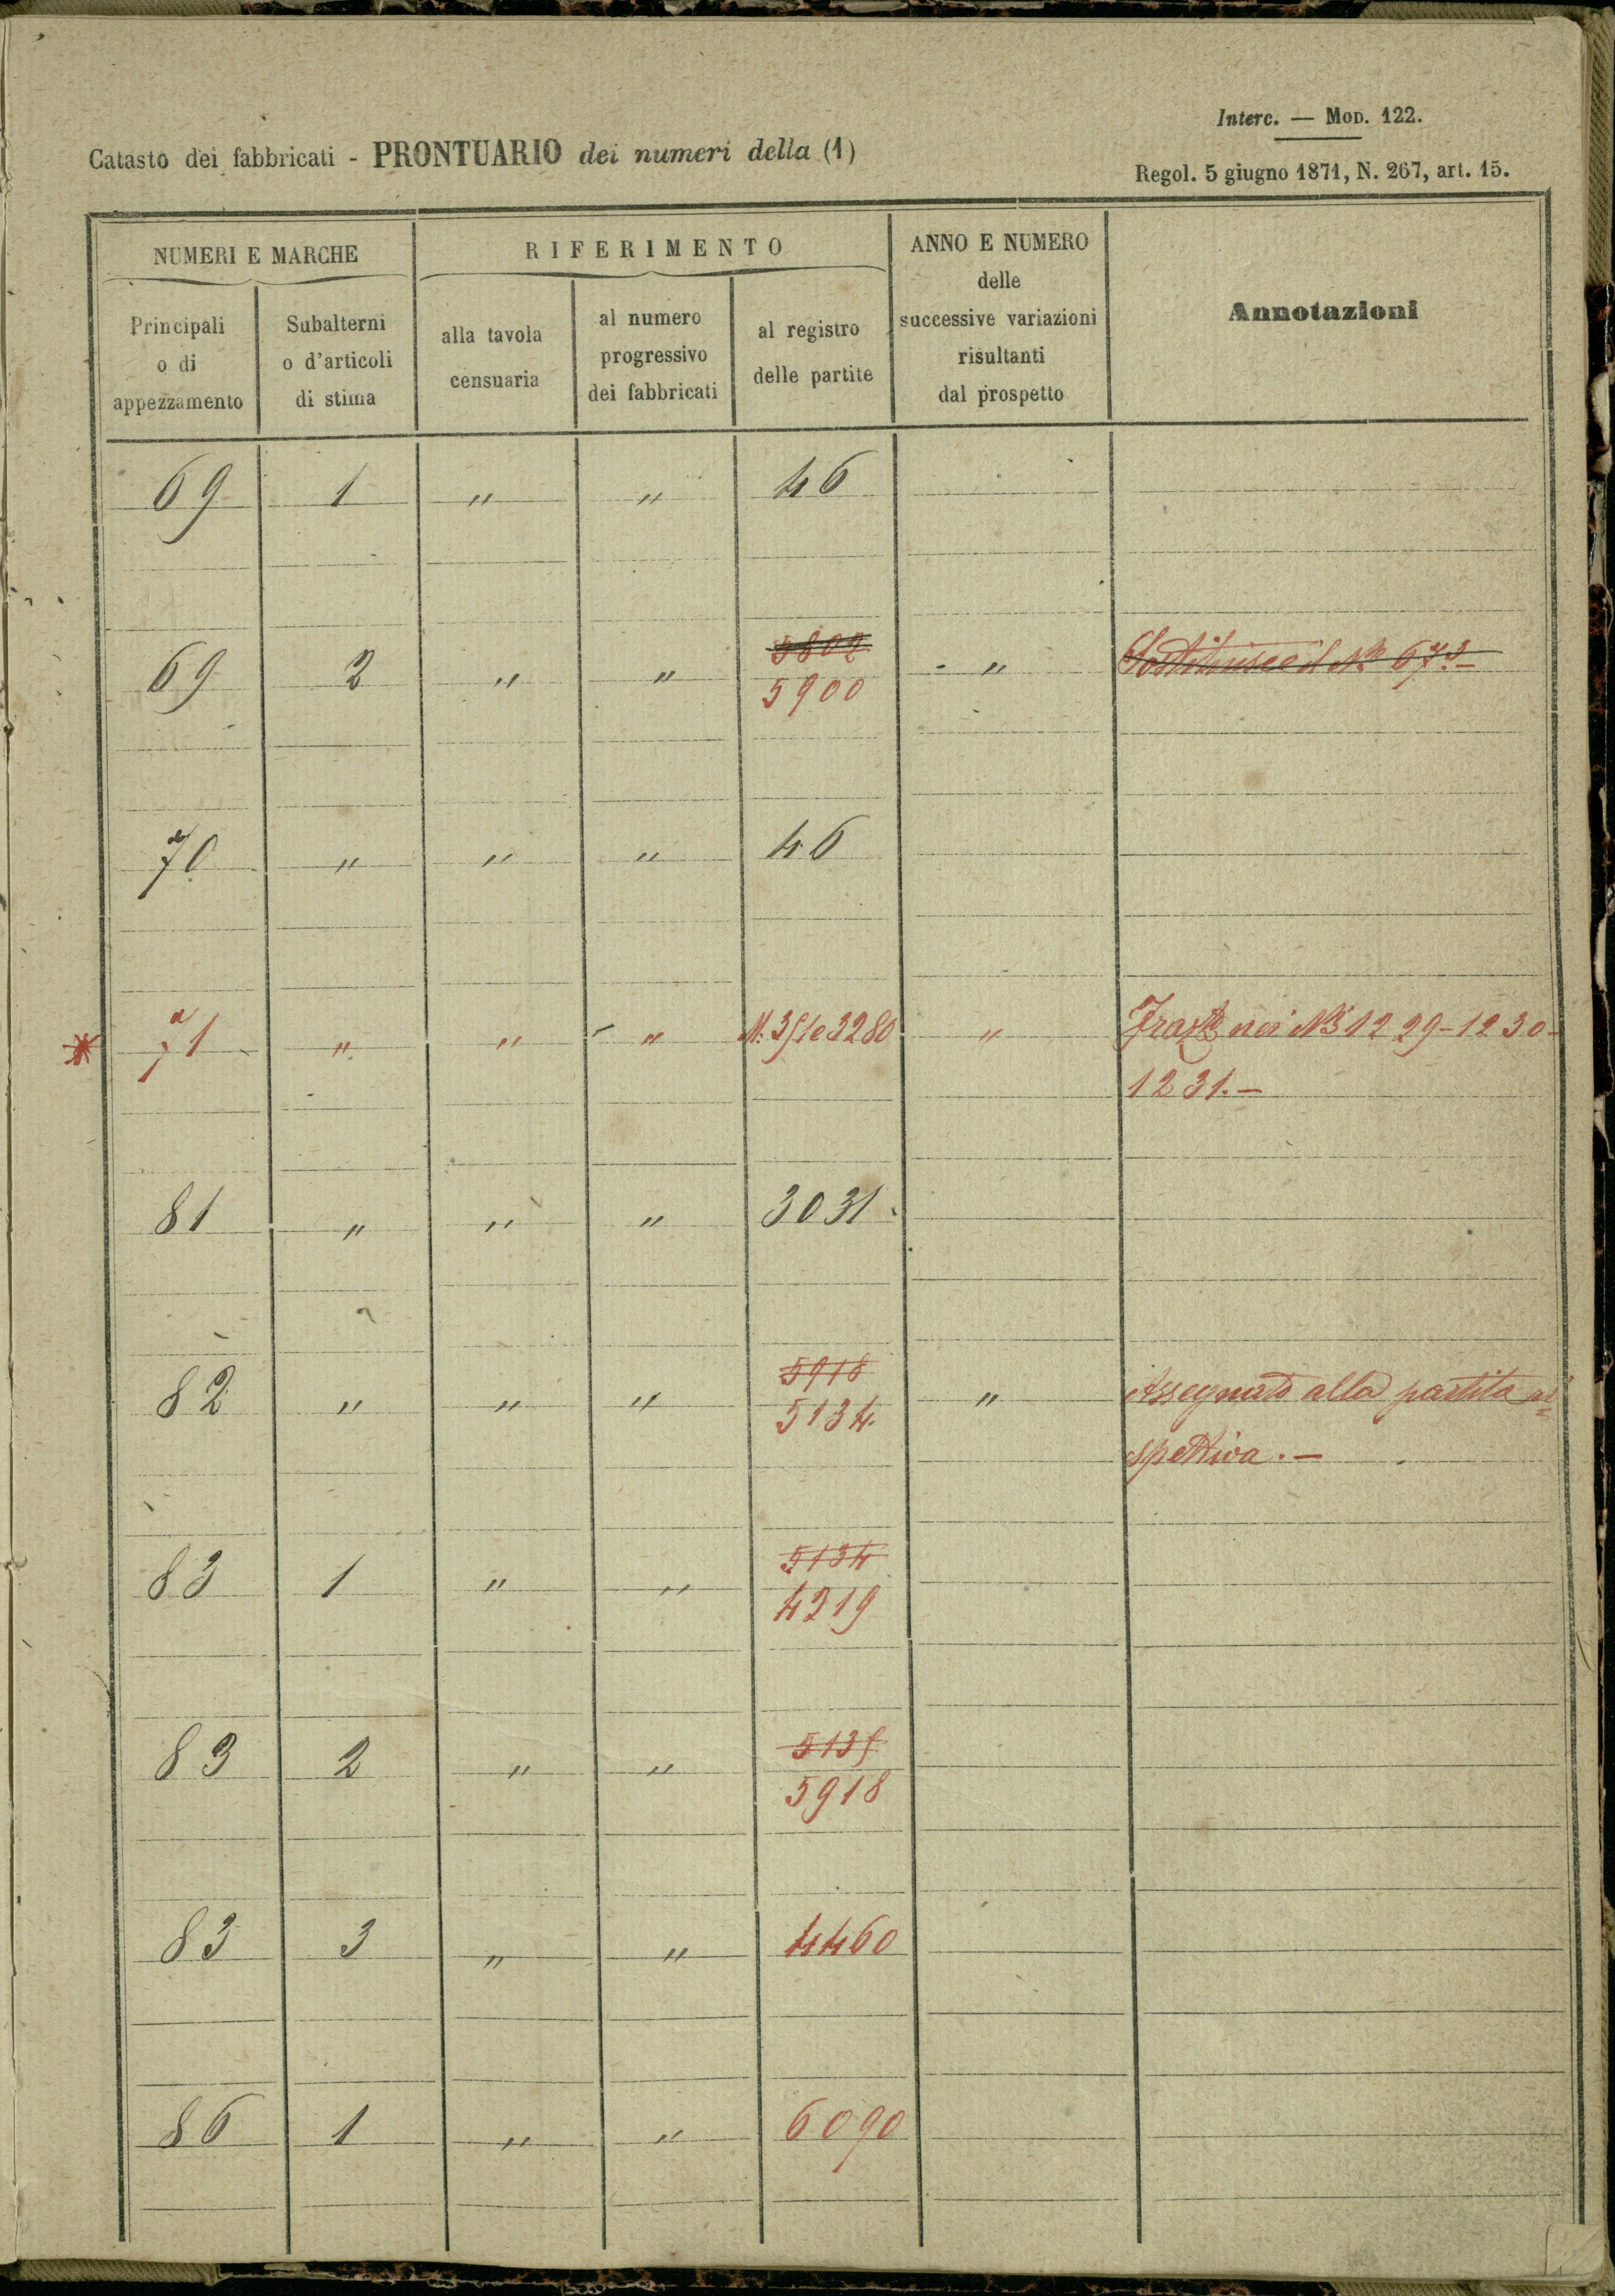 Interc. — Mod. 122.
Catasto dei fabbricati - PRONTUARIO dei numeri della (1)
Regol. 5 giugno 1871, N. 267, art. 15.
NUMERI E MARCHE
RIFERIMENTO
ANNO E NUMERO
delle
successive variazioni
risultanti
dal prospetto
Annotazioni
Principali
o di
appezzamento
Subalterni
o d'articoli
di stima
alla tavola
censuaria
al numero
progressivo
dei fabbricati
al registro
delle partite
69 1 " " 46
5802
69 2 " " 5900 " Sostituisce il No 673
70 " " " 46
71 " " " 3280 " nei Ni 1229-1230-
1231.—
81 " " " 3031
5918
82 " " " 5134 " Assegnato alla partita ri=
spettiva.—
5134
83 1 " " 4219
5135
83 2 " " 5918
83 3 " " 4460
86 1 " " 6090